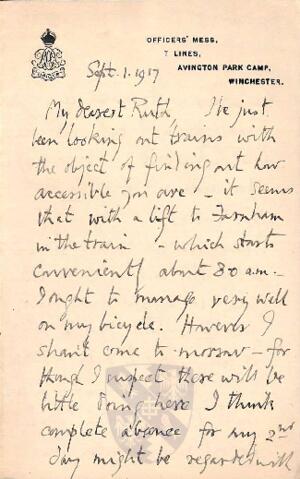 OFFICERS' MESS,
T LINES,
AVINGTON PARK CAMP,
WINCHESTER.
Sept. 1. 1917
My dearest Ruth, I've just
been looking out trains with
the object of finding out how
accessible you are – it seems
that with a lift to Farnham
in the train – which starts
conveniently about 8 0 a.m. –
I ought to manage very well
on my bicycle. However I
shan't come to morrow – for
though I suspect there will be
little doing here I think
complete absence for my 2nd
day might be regarded with